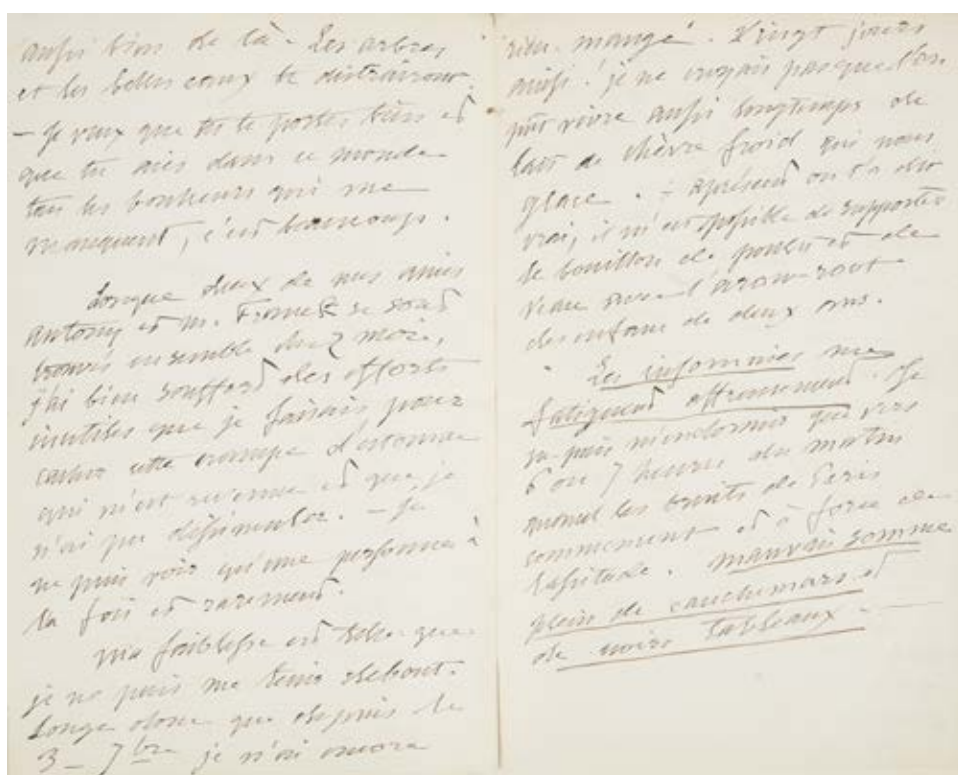 aussi bien de là. Les arbres
et les belles eaux te distrairont
— Je veux que tu te portes bien et
que tu aies dans ce monde
tous les bonheurs qui me
manquent, c'est beaucoup.
Lorsque deux de nos amis
Antony et M. Franck se sont
trouvés ensemble chez moi,
j'ai bien souffert des efforts
inutiles que je faisais pour
cacher cette crampe d'estomac
qui m'est revenue et que je
n'ai pu dissimuler. — Je
ne puis voir qu'une personne à
la fois et rarement.
Ma faiblesse est telle que
je ne puis me tenir debout.
Songe donc que depuis le
3 — 7bre je n'ai encore
rien mangé. Vingt jours
ainsi ! je ne croyais pas que l'on
pût vivre aussi longtemps de
lait de chèvre froid qui nous
glace. — Apresent on t'a dit
vrai, il m'est possible de supporter
le bouillon de poulet et de
veau avec l'arow-root
des enfans de deux ans.
Les insomnies me
fatiguent affreusement. Je
ne puis m'endormir que vers
6 ou 7 heures du matin
quand les bruits de Paris
commencent et à force de
lassitude. mauvais somme
plein de cauchemars et
de noirs tableaux. —